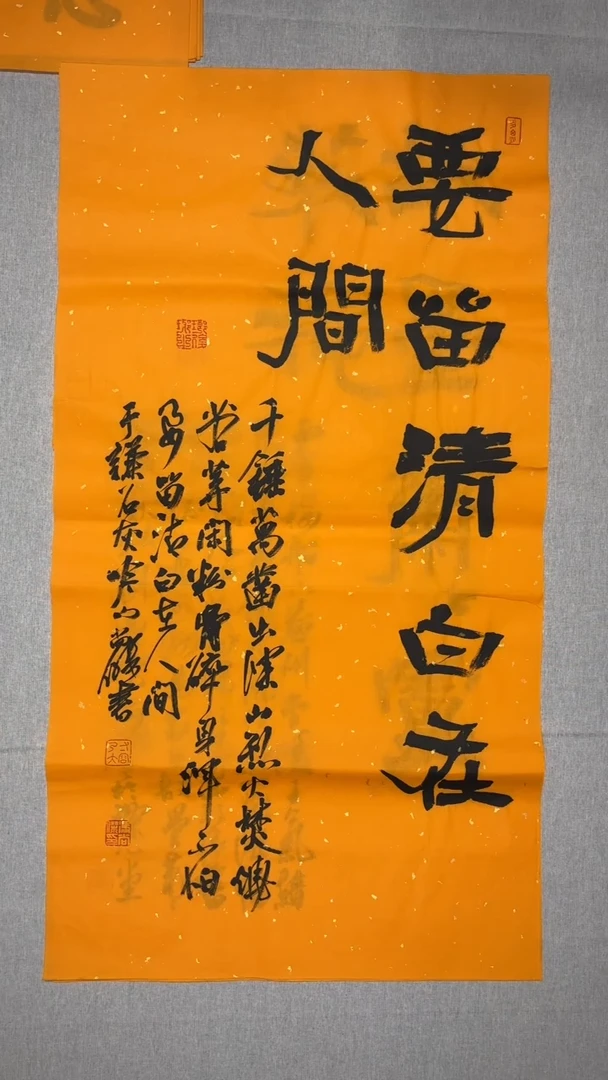 要留清白在
人間
千錘萬鑿出深山烈火焚燒
若等閑粉骨碎身渾不怕
要留清白在人間
于謙石灰吟
書